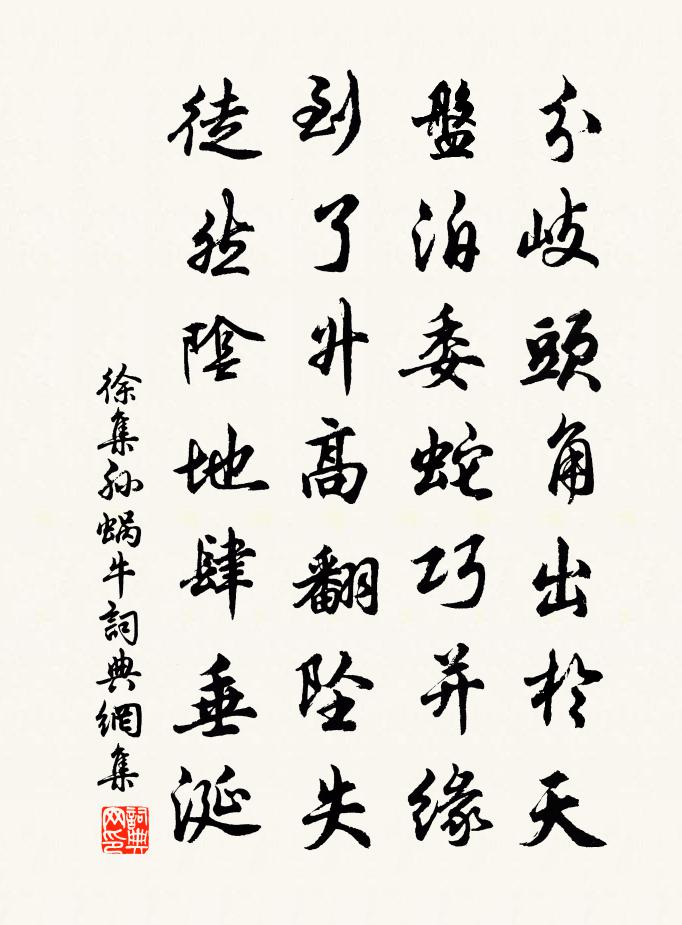 分岐頭角出於天
盤泊委蛇巧并緣
到了升高翻墜失
徒然陰地肆垂涎
徐集孙蝸牛詞典網集
詞典网印